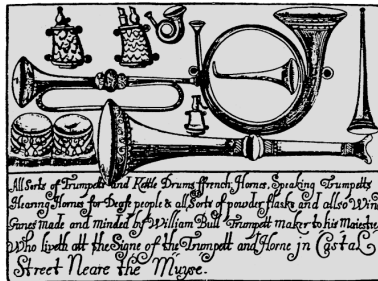 All sorts of Trumpets and Kettle Drums ffrench Hornes, Speaking Trumpetts
Hearing Hornes for Deafe people & all Sorts of powder flasks and allso Wind
Gunes made and minded by William Bull Trumpett maker to his Maiestie
Who liveth att the Signe of the Trumpett and Horne jn Castal
Street Neare the Muyse.